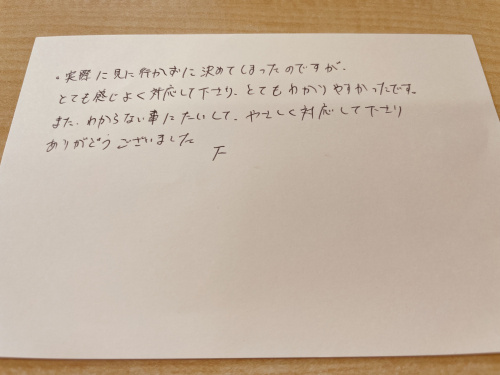 ・実際に見に行かずに決めてしまったのですが、
とても感じよく対応して下さり、とてもわかりやすかったです。
また、わからない事にたいして、やさしく対応して下さり
ありがとうございました
F